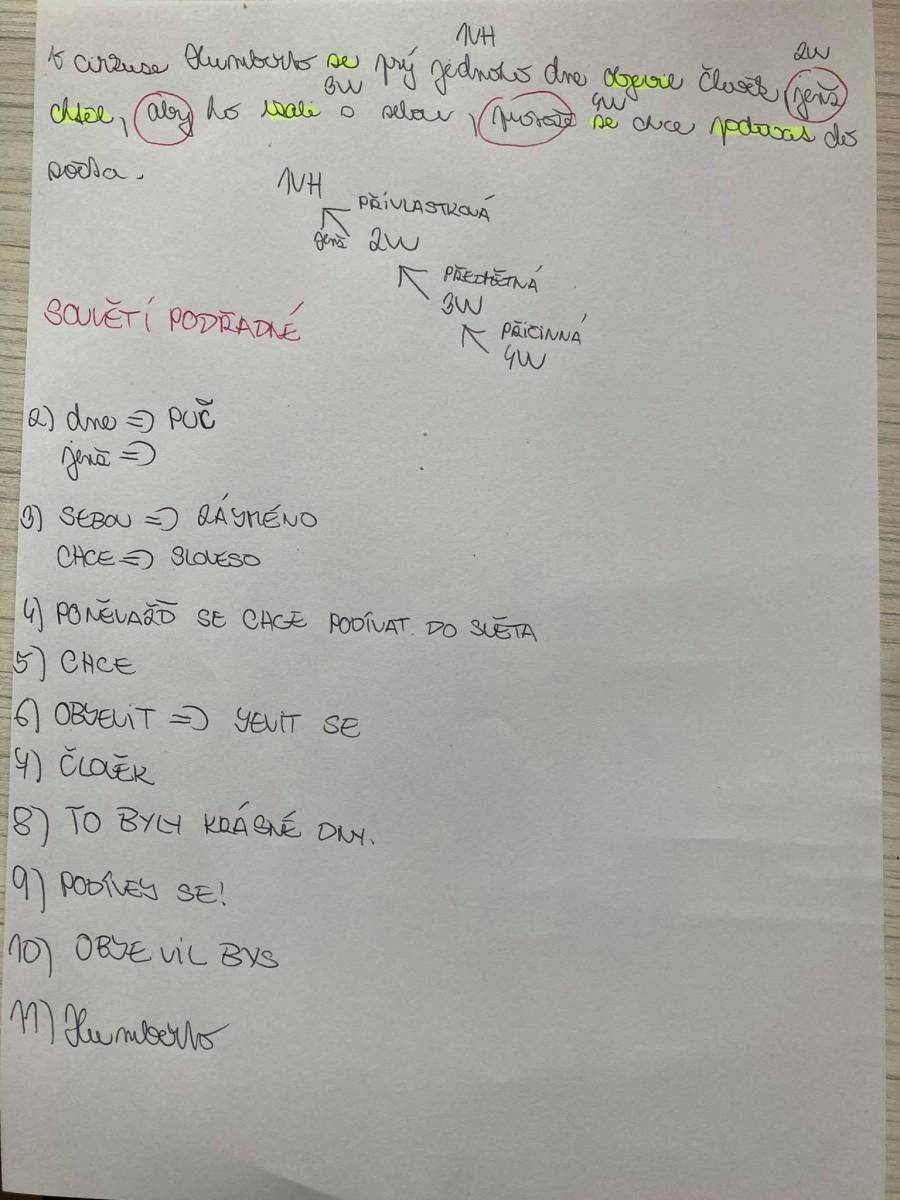 1VH
2VV
V cirkuse Humberto se prý jednoho dne objevil člověk, jenž
3VV 4VV
chtěl, aby ho vzali s sebou, protože se chce podívat do
světa.
1VH
PŘÍVLASTKOVÁ
jenž 2VV
PŘEDMĚTNÁ
3VV
SOUVĚTÍ PODŘADNÉ
PŘÍČINNÁ
4VV
2) dne => PUČ
jenž =>
3) SEBOU => ZÁJMÉNO
CHCE => SLOVESO
4) PONĚVADŽ SE CHCE PODÍVAT DO SVĚTA
5) CHCE
6) OBJEVIT => JEVIT SE
7) ČLOVĚK
8) TO BYLY KRÁSNÉ DNY.
9) PODÍVEJ SE!
10) OBJEVIL BYS
11) Humberto